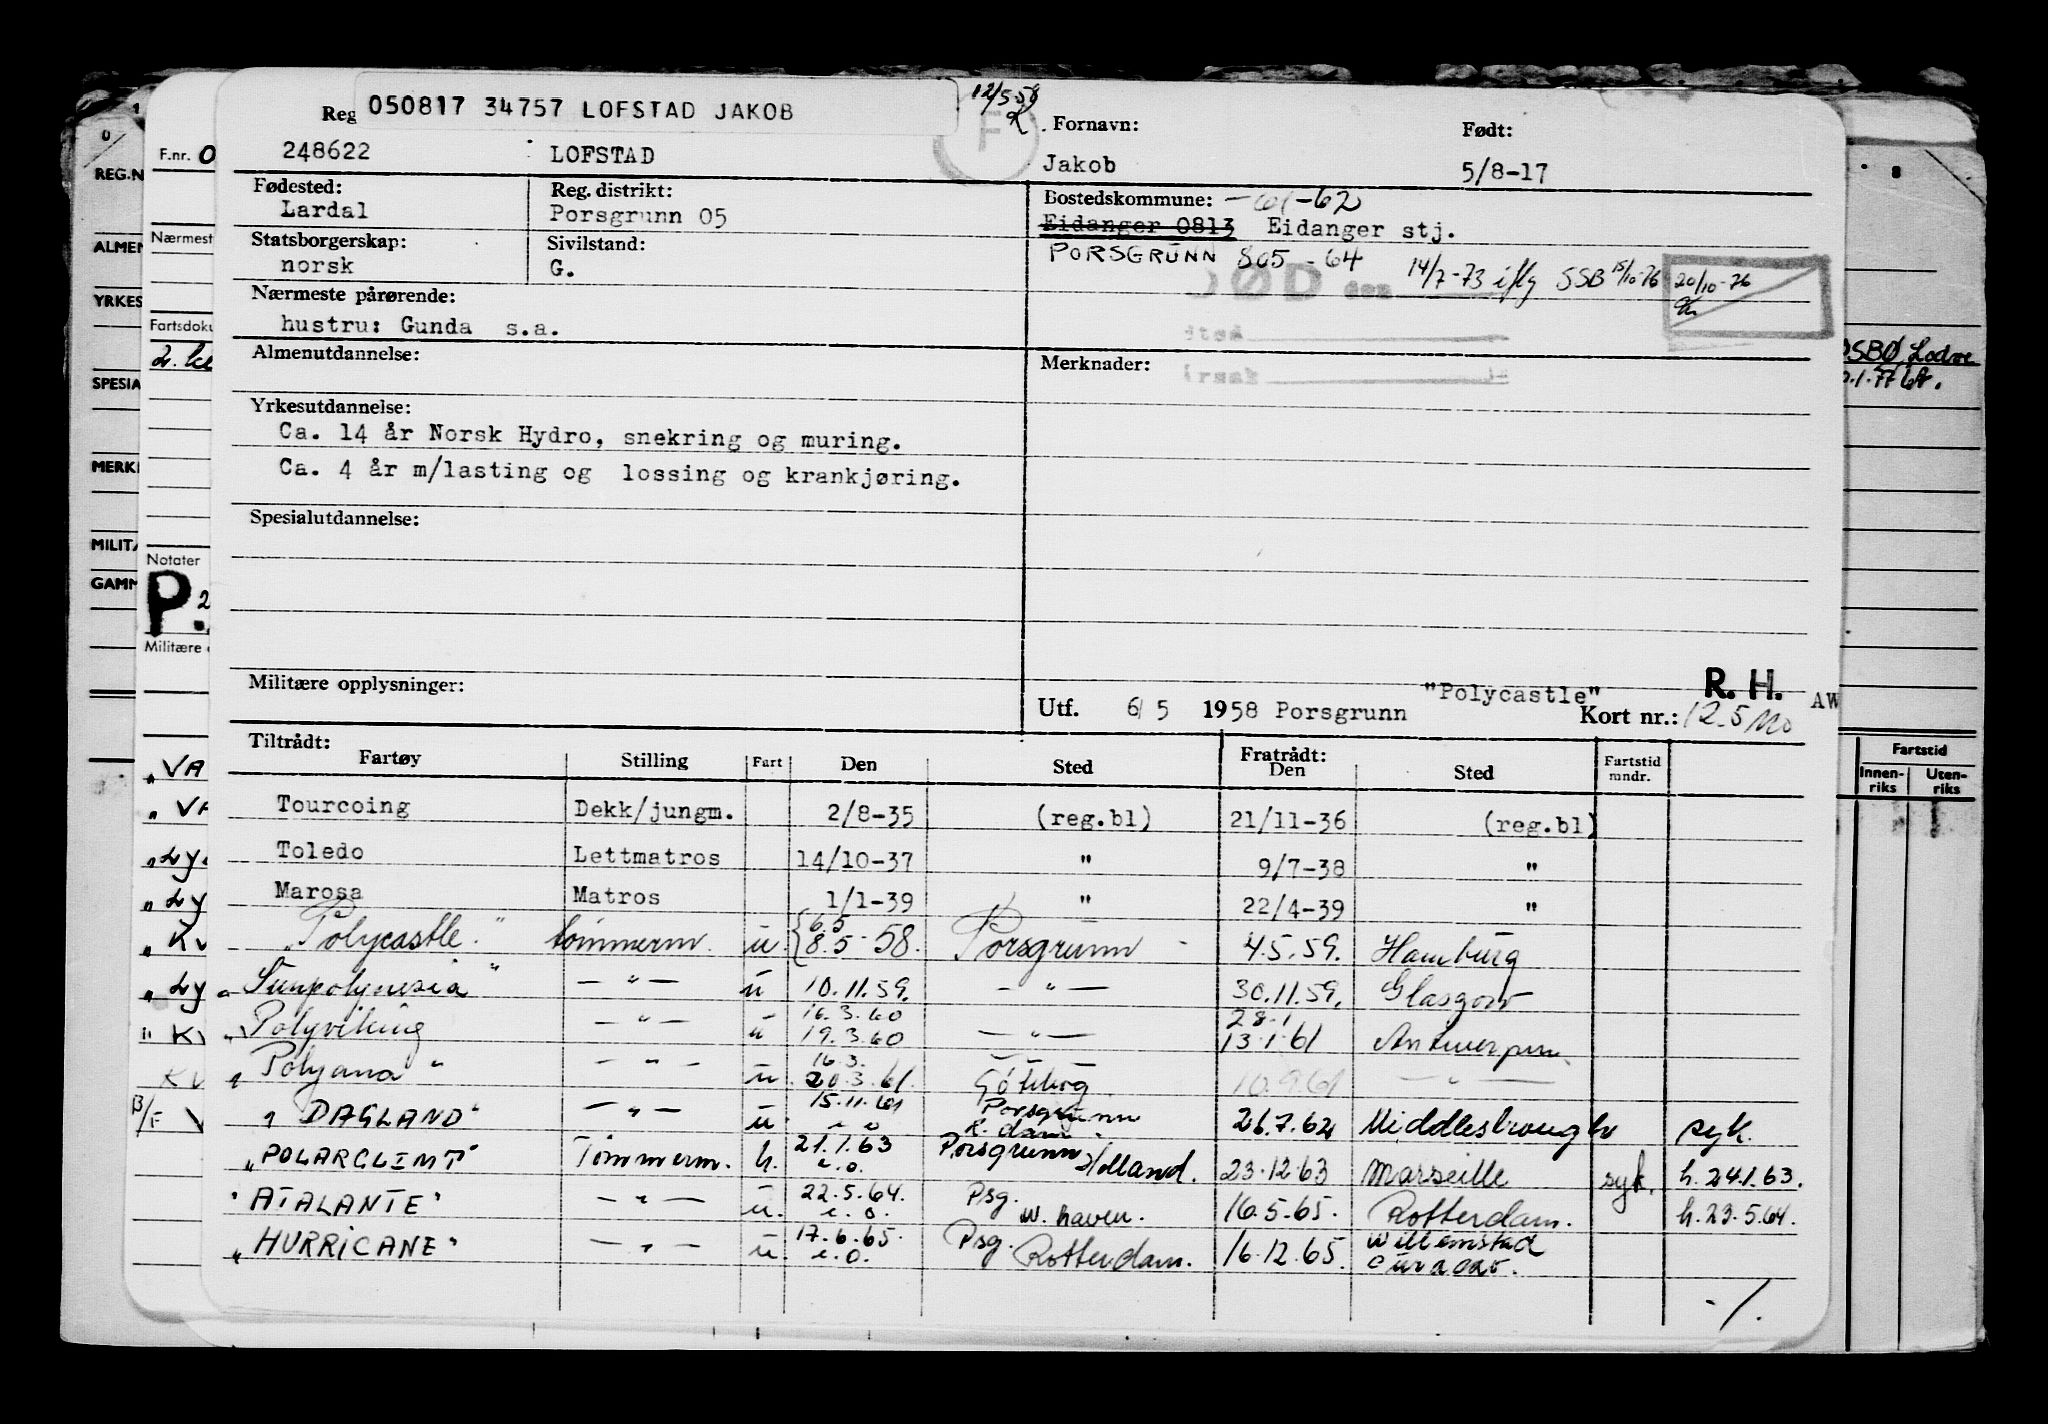 Reg 050817 34757 LOFSTAD JAKOB 12/5 58
F
Fornavn: Født:
248622 LOFSTAD Jakob 5/8-17
Fødested: Reg. distrikt: Bostedskommune: -62
Lardal Porsgrunn 05 Eidanger 0813 Eidanger stj.
Statsborgerskap: Sivilstand: PORSGRUNN 805 - 64
norsk G. DØD den 14/7-73 iflg SSB 15/10-76 20/10-76
Nærmeste pårørende:
hustru: Gunda s.a.
Almenutdannelse: Merknader: Årsak
Yrkesutdannelse:
Ca. 14 år Norsk Hydro, snekring og muring.
Ca. 4 år m/lasting og lossing og krankjøring.
Spesialutdannelse:
Militære opplysninger:
"Polycastle" R. H. AW
Utf. 6/5 1958 Porsgrunn Kort nr.: 12.5
Tiltrådt: Fratrådt:
Fartøy Stilling Fart Den Sted Den Sted Fartstid mndr.
Tourcoing Dekk/jungm. 2/8-35 (reg.bl) 21/11-36 (reg.bl)
Toledo Lettmatros 14/10-37 " 9/7-38 "
Marosa Matros 1/1-39 " 22/4-39 "
"Polycastle" tømmerm. u. { 6.5 8.5-58. Porsgrunn - 4.5.59. Hamburg
"Sunpolynesia" — " — u 10.11.59. — " — 30.11.59. Glasgow
"Polyviking — " — u 16.3.60 19.3.60 — " — 28.1 13.1.61 Antwerpen
"Polyana" — " — u. 16.3. 20.3.61. Göteborg 10.9.61 — " —
"DAGLAND" — " — u. 15.11.61 i.o Porsgrunn R.dam. 26.7.62 Middlesbrough syk.
"POLARGLIMT" Tømmerm. h. 21.1.63 i.o. Porsgrunn Holland. 23.12.63 Marseille syk. h. 24.1.63.
"ATALANTE" — " — u. 22.5.64. i.o. Psg. W. haven. 16.5.65. Rotterdam. h. 23.5.64.
"HURRICANE" — " — u. 17.6.65. i.o. Psg. Rotterdam. 16.12.65. Willemstad Curacao.
-/.
F.nr. 0
Nærmest
Fartsdoku
Notater
P. 2
Militære
"VA
"VA
"Ly
"Ly
"KV
"Ly
"KV
KV
B/F V
0/
1
8
REG.N
ALMEN
YRKES
SPESIA
MERK
MILITÆ
GAMM
.1.77
Fartstid
Innen-riks Uten-riks